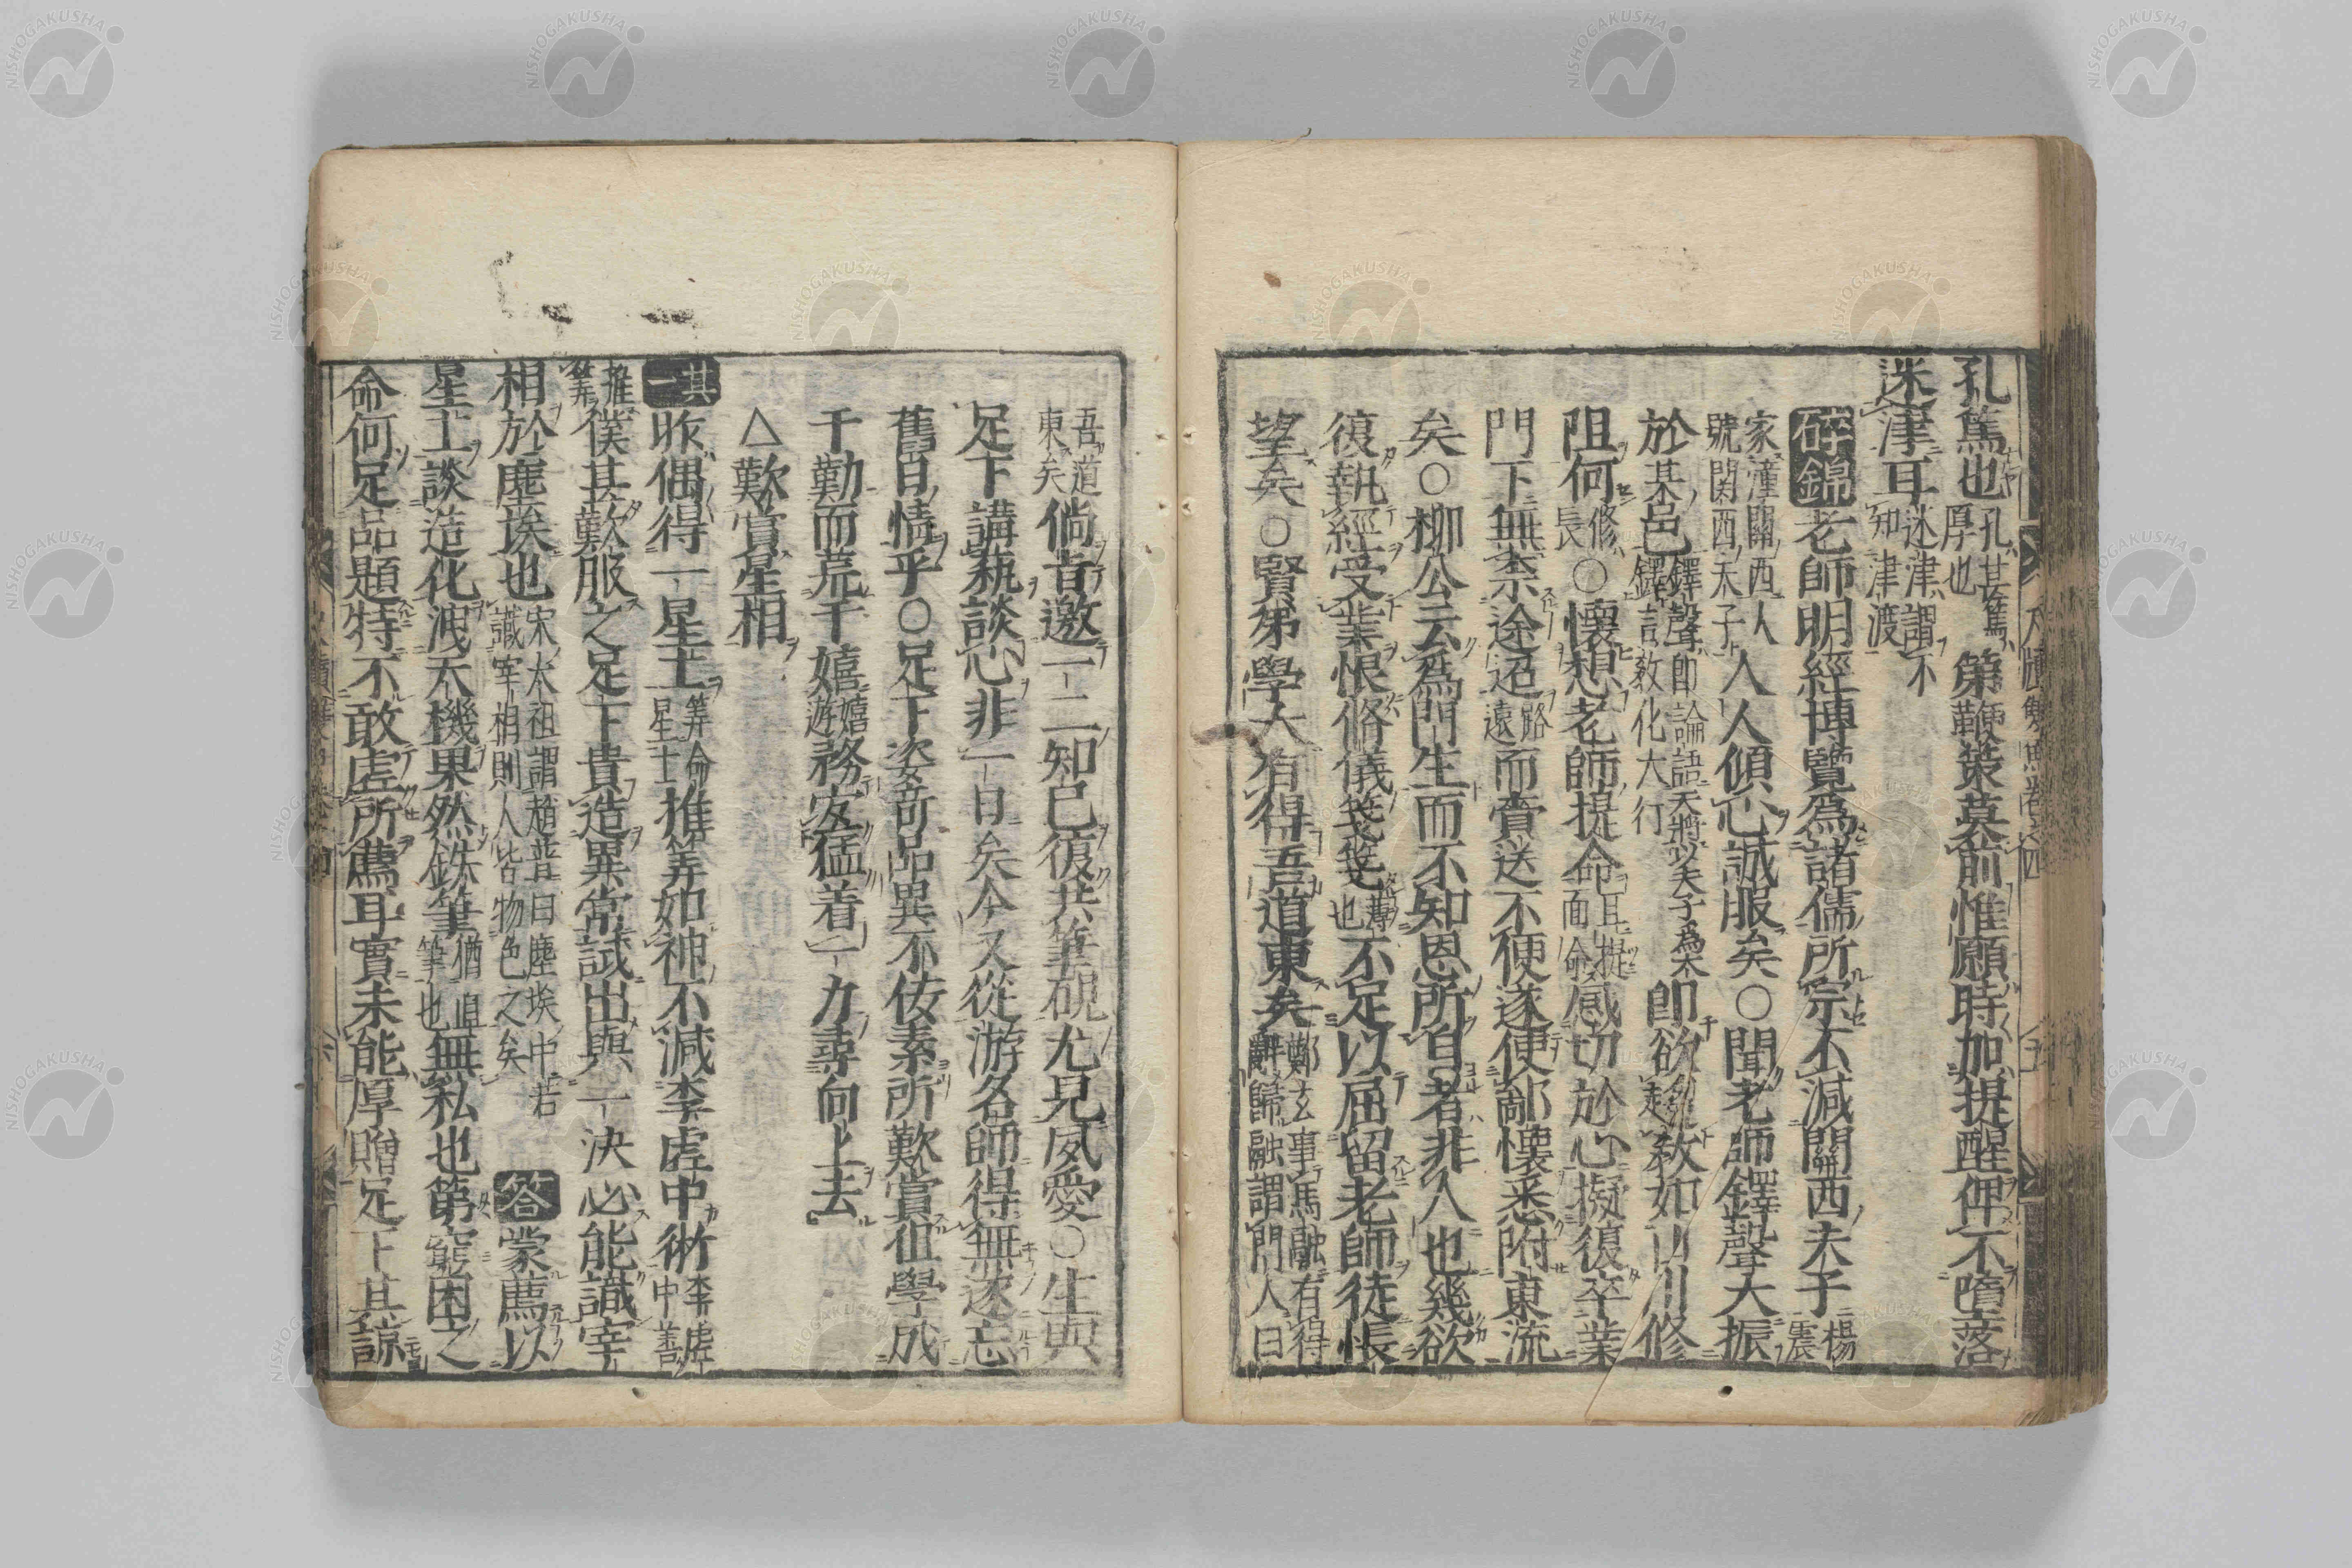 孔篤也孔甚篤厚也第鞭策慕前惟願時加提醒俾不墮落
迷津耳迷津謂不知津渡
碎錦老師明經博覽爲諸儒所宗不減關西夫子楊震
家潼關西人號関西夫子人人傾心誠服矣○聞老師鐸聲大振
於某邑鐸聲即論語天將以夫子爲木鐸言敎化大行即欲趨敎如山川修
阻何修長○懷想老師提命耳提面命感切於心擬復卒業
門下無柰途迢路遠而賫送不便遂使鄙懷悉附東流
矣○柳公云爲門生而不知恩所自者非人也幾欲
復執經受業恨脩儀菲薄也不足以屈留老師徒悵
望矣○賢弟學大有得吾道東矣鄭玄事馬融有得辭歸融謂門人曰
吾道東矣倘肯邀一二知己復共筆硯尤見夙愛○生與
足下講藝談心非一日矣今又從游名師得無遂忘
舊日情乎○足下姿奇品異不佞素所歎賞但學成
于勤而荒于嬉嬉遊務宜猛着一力尋向上去
△歎賞星相
其一昨偶得一星士筭命星士推筭如神不減李虛中術李虛中善
推筭僕甚歎服之足下貴造異常試出與一決必能識宰
相於塵埃也宋太祖謂趙普曰塵埃中若識宰相則人皆物色之矣答蒙薦以
星士談造化洩天機果然鉄筆猶直筆也無私也第窮困之
命何足品題特不敢虛所薦耳實未能厚贈足下其諒
NISHOGAKUSHA